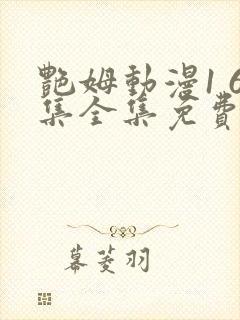 艷姆動漫1 6
集全集免費
幕菱羽